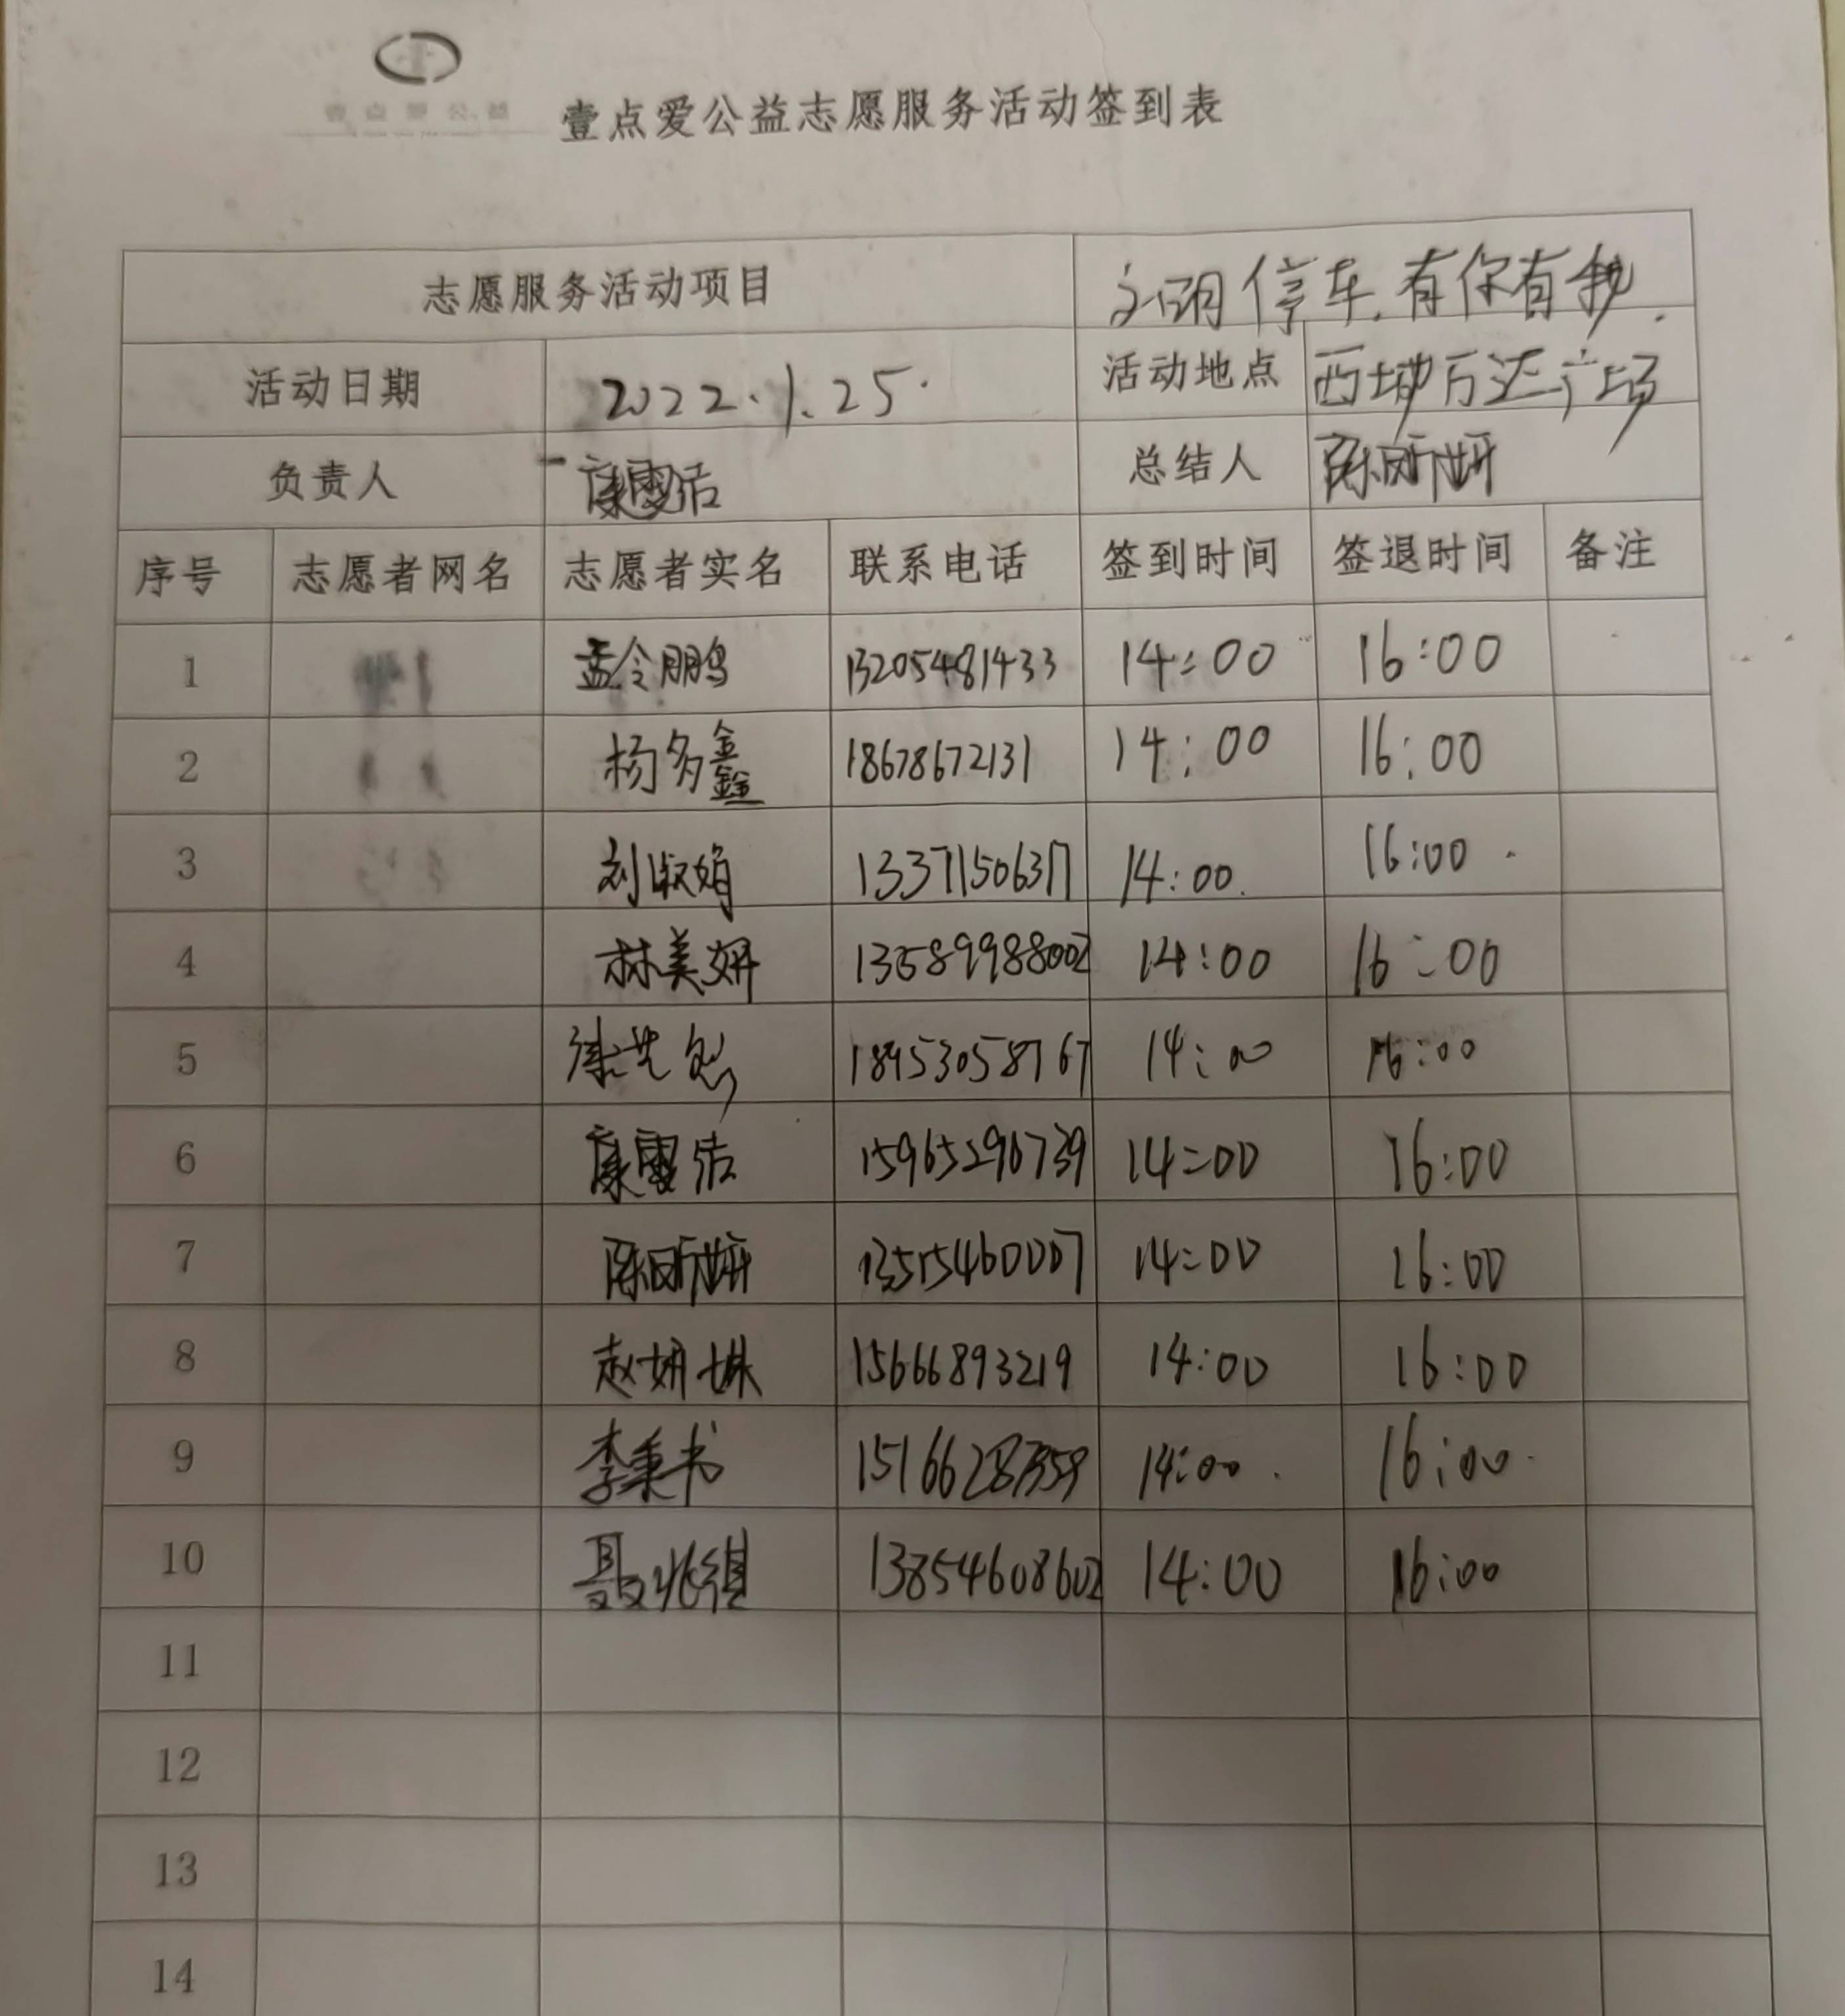 壹点爱公益志愿服务活动签到表
志愿服务活动项目 文明停车.有你有我.
活动日期 2022.1.25. 活动地点 西城万达广场
负责人 康雪洁 总结人 陈昕妍
序号 志愿者网名 志愿者实名 联系电话 签到时间 签退时间 备注
1 孟令鹏 13205481433 14:00 16:00
2 杨多鑫 18678672131 14:00 16:00
3 刘淑娟 13371506317 14:00. 16:00
4 林美妍 13589998002 14:00 16:00
5 18953058767 14:00 16:00
6 康雪洁 15965296739 14:00 16:00
7 陈昕妍 13515460007 14:00 16:00
8 赵妍姝 15666893219 14:00 16:00
9 李秉书 14:00. 16:00.
10 聂兆祺 13854608602 14:00 16:00
11
12
13
14